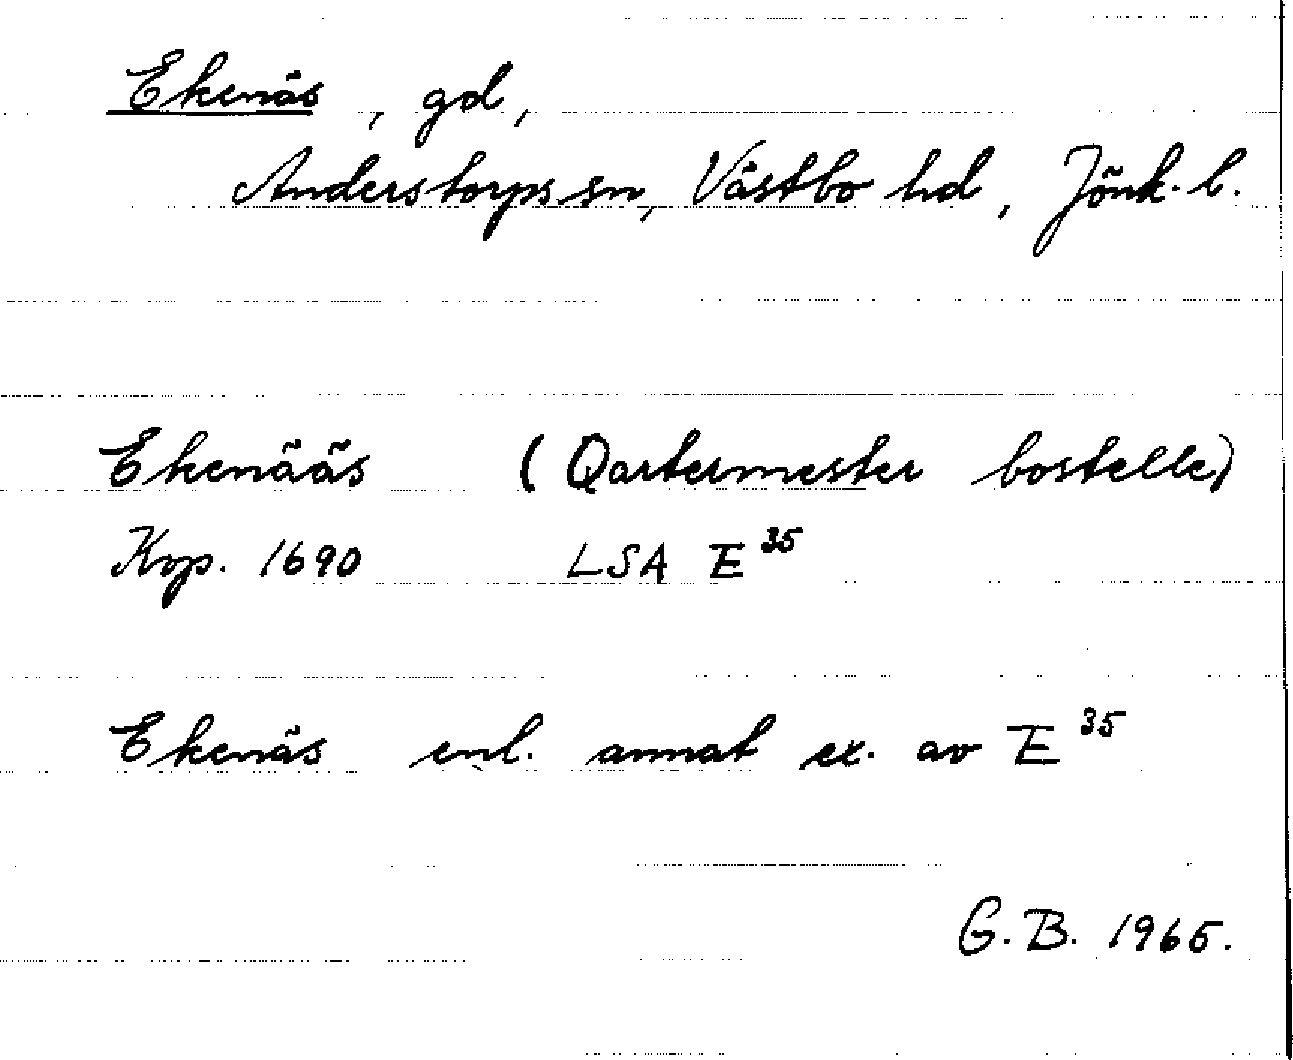 Ekenäs, gd,
Anderstorps sn, Västbo hd, Jönk. l.
Ekenääs (Qartermester bostelle)
Kop. 1690 LSA E 35
Ekenäs enl. annat ex. av E 35
G. B. 1965.